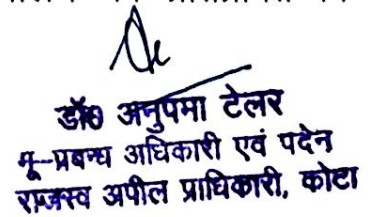 डॉ० अनुपमा टेलर
भू-प्रबन्ध अधिकारी एवं पदेन
राजस्व अपील प्राधिकारी, कोटा